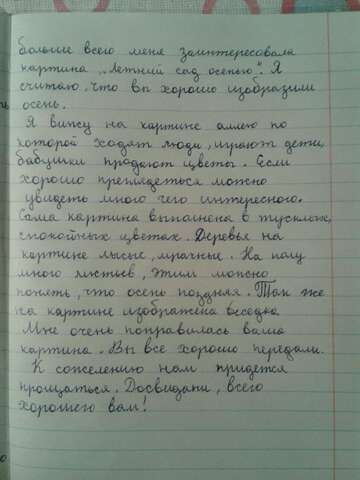 больше всего меня заинтересовала
картина „Летний сад осенью". Я
считаю, что вы хорошо изобразили
осень.
Я вижу на картине аллею по
которой ходят люди, играют дети,
бабушки продают цветы. Если
хорошо преглядеться можно
увидеть много чего интересного.
Сама картина выполнена в тусклых,
спокойных цветах. Деревья на
картине лысые, мрачные. На полу
много листьев, этим можно
понять, что осень поздняя. Так же
на картине изображена беседка
Мне очень понравилась ваша
картина. Вы все хорошо передали.
К сожелению нам придется
прощаться. Досвидани, всего
хорошего вам!